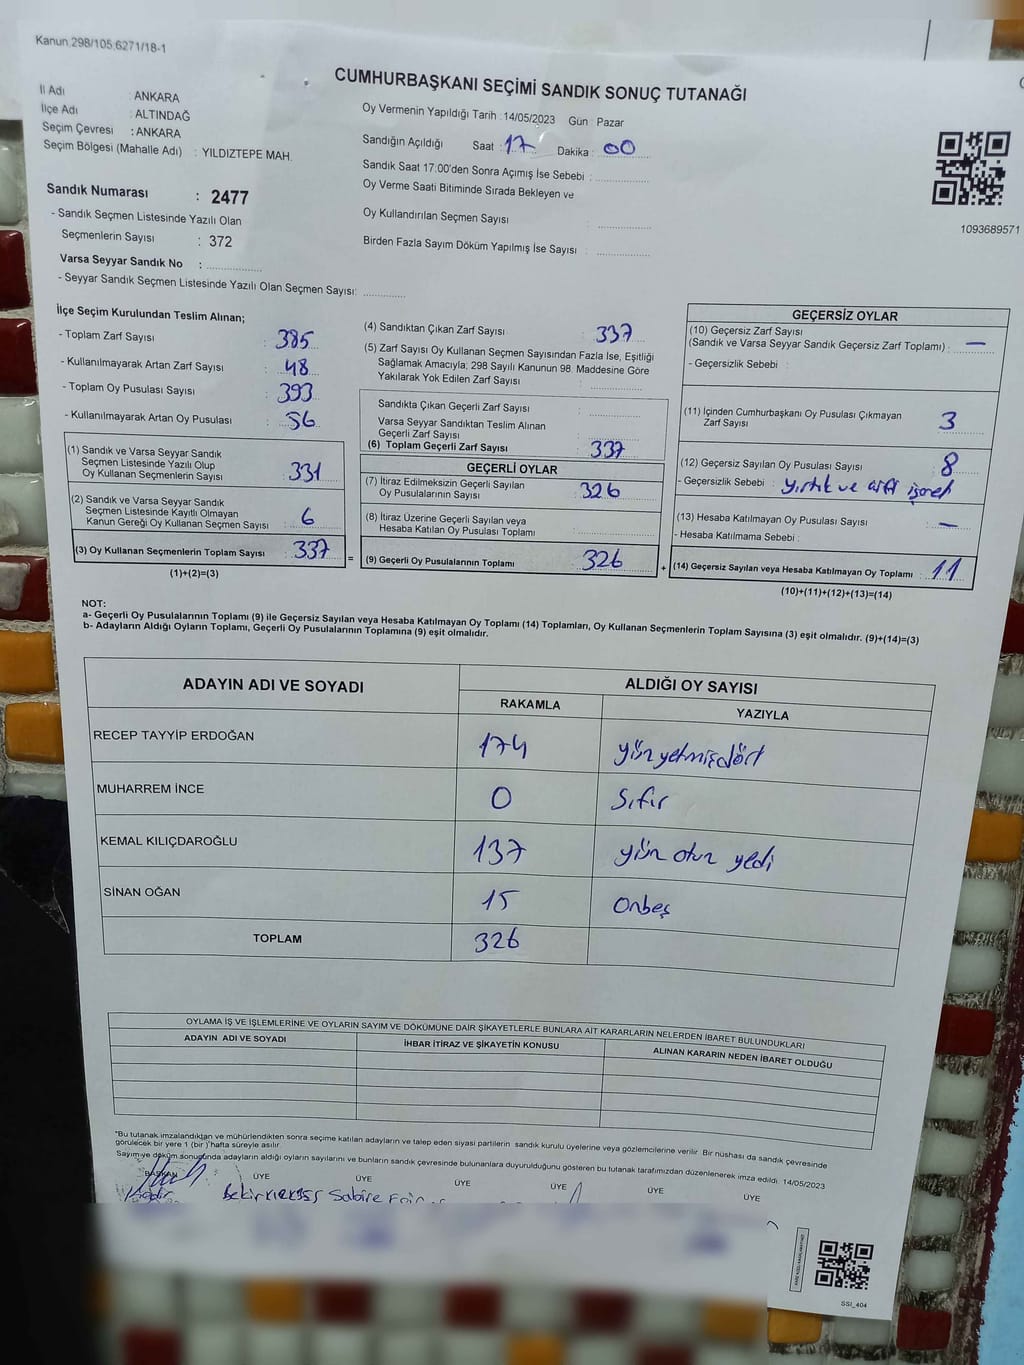 Kanun.298/105.6271/18-1
CUMHURBAŞKANI SEÇİMİ SANDIK SONUÇ TUTANAĞI
İl Adı : ANKARA
İlçe Adı : ALTINDAĞ
Seçim Çevresi : ANKARA
Seçim Bölgesi (Mahalle Adı) : YILDIZTEPE MAH.
Oy Vermenin Yapıldığı Tarih : 14/05/2023 Gün : Pazar
Sandığın Açıldığı Saat : 17 Dakika : 00
Sandık Saat 17:00'den Sonra Açımış İse Sebebi :
Oy Verme Saati Bitiminde Sırada Bekleyen ve
Oy Kullandırılan Seçmen Sayısı :
Birden Fazla Sayım Döküm Yapılmış İse Sayısı :
1093689571
Sandık Numarası : 2477
- Sandık Seçmen Listesinde Yazılı Olan
Seçmenlerin Sayısı : 372
Varsa Seyyar Sandık No :
- Seyyar Sandık Seçmen Listesinde Yazılı Olan Seçmen Sayısı:
İlçe Seçim Kurulundan Teslim Alınan;
- Toplam Zarf Sayısı : 385
- Kullanılmayarak Artan Zarf Sayısı : 48
- Toplam Oy Pusulası Sayısı : 393
- Kullanılmayarak Artan Oy Pusulası : 56
(1) Sandık ve Varsa Seyyar Sandık
Seçmen Listesinde Yazılı Olup
Oy Kullanan Seçmenlerin Sayısı : 331
(2) Sandık ve Varsa Seyyar Sandık
Seçmen Listesinde Kayıtlı Olmayan
Kanun Gereği Oy Kullanan Seçmen Sayısı : 6
(3) Oy Kullanan Seçmenlerin Toplam Sayısı : 337
(1)+(2)=(3)
(4) Sandıktan Çıkan Zarf Sayısı : 337
(5) Zarf Sayısı Oy Kullanan Seçmen Sayısından Fazla İse, Eşitliği
Sağlamak Amacıyla; 298 Sayılı Kanunun 98. Maddesine Göre
Yakılarak Yok Edilen Zarf Sayısı :
Sandıkta Çıkan Geçerli Zarf Sayısı :
Varsa Seyyar Sandıktan Teslim Alınan
Geçerli Zarf Sayısı :
(6) Toplam Geçerli Zarf Sayısı : 337
GEÇERLİ OYLAR
(7) İtiraz Edilmeksizin Geçerli Sayılan
Oy Pusulalarının Sayısı : 326
(8) İtiraz Üzerine Geçerli Sayılan veya
Hesaba Katılan Oy Pusulası Toplamı :
= (9) Geçerli Oy Pusulalarının Toplamı : 326
GEÇERSİZ OYLAR
(10) Geçersiz Zarf Sayısı
(Sandık ve Varsa Seyyar Sandık Geçersiz Zarf Toplamı) : —
- Geçersizlik Sebebi :
(11) İçinden Cumhurbaşkanı Oy Pusulası Çıkmayan
Zarf Sayısı : 3
(12) Geçersiz Sayılan Oy Pusulası Sayısı : 8
- Geçersizlik Sebebi : yırtık ve çift işaret
(13) Hesaba Katılmayan Oy Pusulası Sayısı : —
- Hesaba Katılmama Sebebi :
+ (14) Geçersiz Sayılan veya Hesaba Katılmayan Oy Toplamı : 11
(10)+(11)+(12)+(13)=(14)
NOT:
a- Geçerli Oy Pusulalarının Toplamı (9) ile Geçersiz Sayılan veya Hesaba Katılmayan Oy Toplamı (14) Toplamları, Oy Kullanan Seçmenlerin Toplam Sayısına (3) eşit olmalıdır. (9)+(14)=(3)
b- Adayların Aldığı Oyların Toplamı, Geçerli Oy Pusulalarının Toplamına (9) eşit olmalıdır.
ADAYIN ADI VE SOYADI ALDIĞI OY SAYISI
RAKAMLA YAZIYLA
RECEP TAYYİP ERDOĞAN 174 yüz yetmiş dört
MUHARREM İNCE 0 Sıfır
KEMAL KILIÇDAROĞLU 137 yüz otuz yedi
SİNAN OĞAN 15 Onbeş
TOPLAM 326
OYLAMA İŞ VE İŞLEMLERİNE VE OYLARIN SAYIM VE DÖKÜMÜNE DAİR ŞİKAYETLERLE BUNLARA AİT KARARLARIN NELERDEN İBARET BULUNDUKLARI
ADAYIN ADI VE SOYADI İHBAR İTİRAZ VE ŞİKAYETİN KONUSU ALINAN KARARIN NEDEN İBARET OLDUĞU
"Bu tutanak imzalandıktan ve mühürlendikten sonra seçime katılan adayların ve talep eden siyasi partilerin sandık kurulu üyelerine veya gözlemcilerine verilir. Bir nüshası da sandık çevresinde
görülecek bir yere 1 (bir) hafta süreyle asılır.
Sayım ve döküm sonucunda adayların aldığı oyların sayılarını ve bunların sandık çevresinde bulunanlara duyurulduğunu gösteren bu tutanak tarafımızdan düzenlenerek imza edildi. 14/05/2023
BAŞKAN ÜYE ÜYE ÜYE ÜYE ÜYE ÜYE
Kadir Bekir Sabire
SSI_404